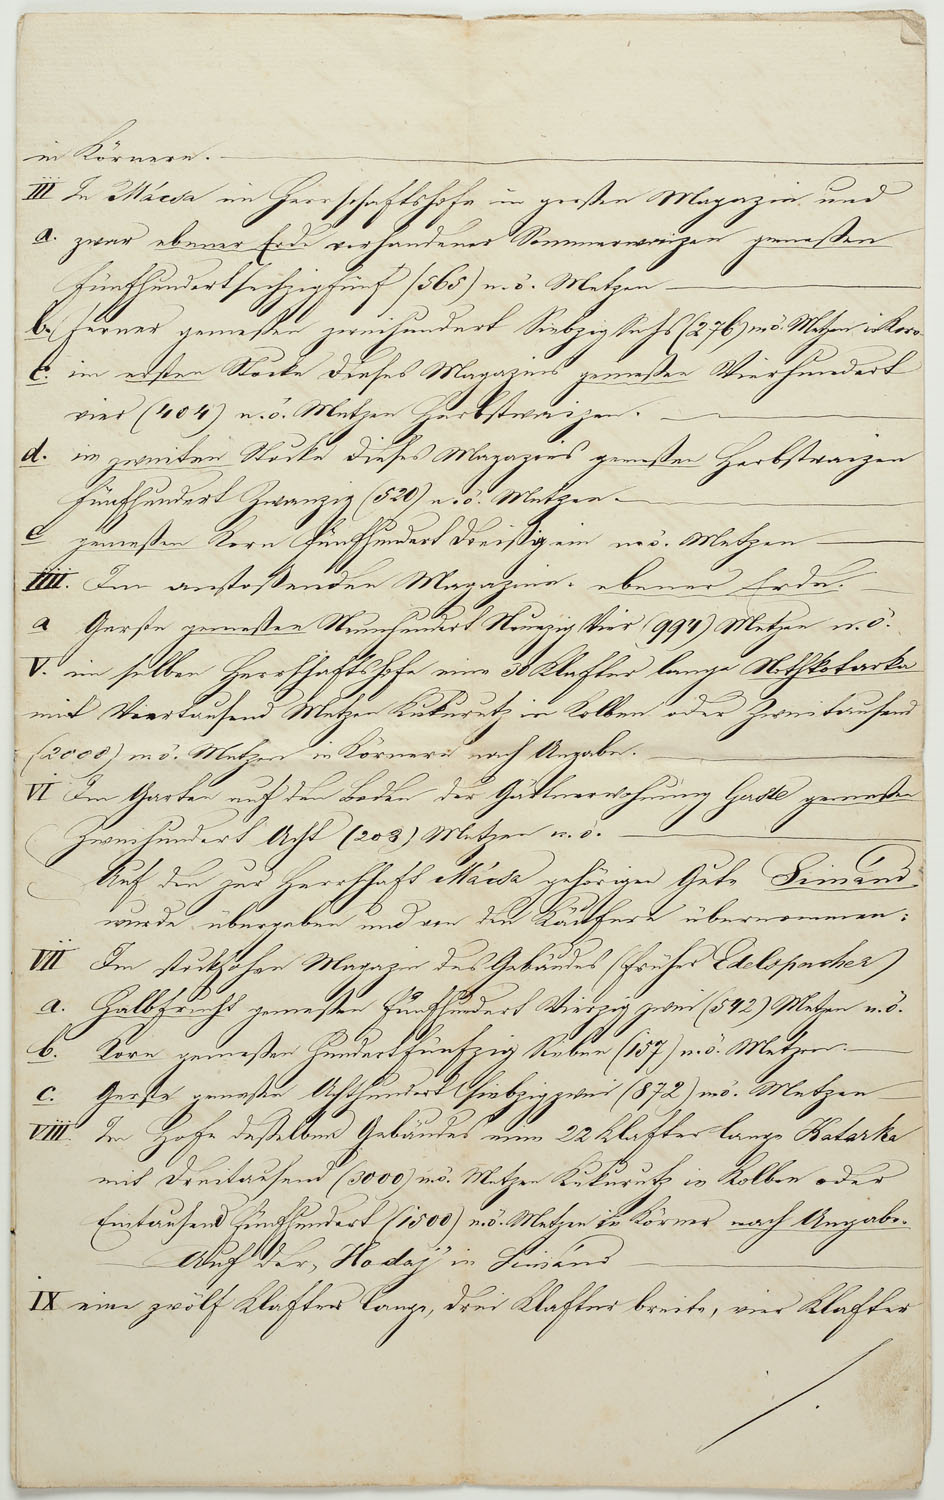 in Körnern.
III In Mácsa im Herrschaftshofe in großen Magazin und
a. zwar ebener Erde vorhandener Sommerwaizen gemeßen
Fünfhundertsechzigfünf (565) n. ö. Metzen
b.) ferner gemeßen zweihundert Siebzig Sechs (276) n ö. Metzen Korn
c. im ersten Stocke dieses Magazins gemeßen Vierhundert
vier (404) n. ö. Metzen Herbstwaizen.
d. im zweiten Stocke dieses Magazins gemeßen Herbstwaizen
Fünfhundert Zwanzig (520) n. ö. Metzen.
e gemeßen Korn Fünfhundert Dreißig ein n ö. Metzen
IIII. Im anstoßenden Magazine. ebener Erde.
a Gerste gemeßen Neunhundert Neunzig Vier (994) Metzen n. ö.
V. im selben Herrschaftshofe eine 30 Klafter lange Nothkotarka
mit Viertausend Metzen Kukurutz in Kolben oder Zweitausend
(2000) n ö. Metzen in Körnern nach Angabe.
VI Im Garten auf den Boden der Gärtnerwohnung gemeßen
Zweihundert Acht (208) Metzen n. ö.
Auf den zur Herrschaft Mácsa gehörigen Gute Simánd
wurde übergeben und von den Käufern übernommen:
VII Im stockhohen Magazin des Gebäudes (früher Edelspacher)
a. Halbfrucht gemeßen Fünfhundert Vierzig zwei (542) Metzen n. ö.
b. Korn gemeßen Hundertfünfzig Sieben (157) n. ö. Metzen.
c. Gerste gemeßen Achthundert siebzigzwei (872) n ö. Metzen
VIII. Im Hofe desselben Gebäudes eine 22 Klafter lange Kotarka
mit Dreitausend (3000) n ö. Metzen Kukurutz in Kolben oder
Eintausend Fünfhundert (1500) n. ö. Metzen in Körner nach Angabe.
Auf der „Hodaj" in Simánd
IX eine zwölf Klafter lange, drei Klafter breite, vier Klafter